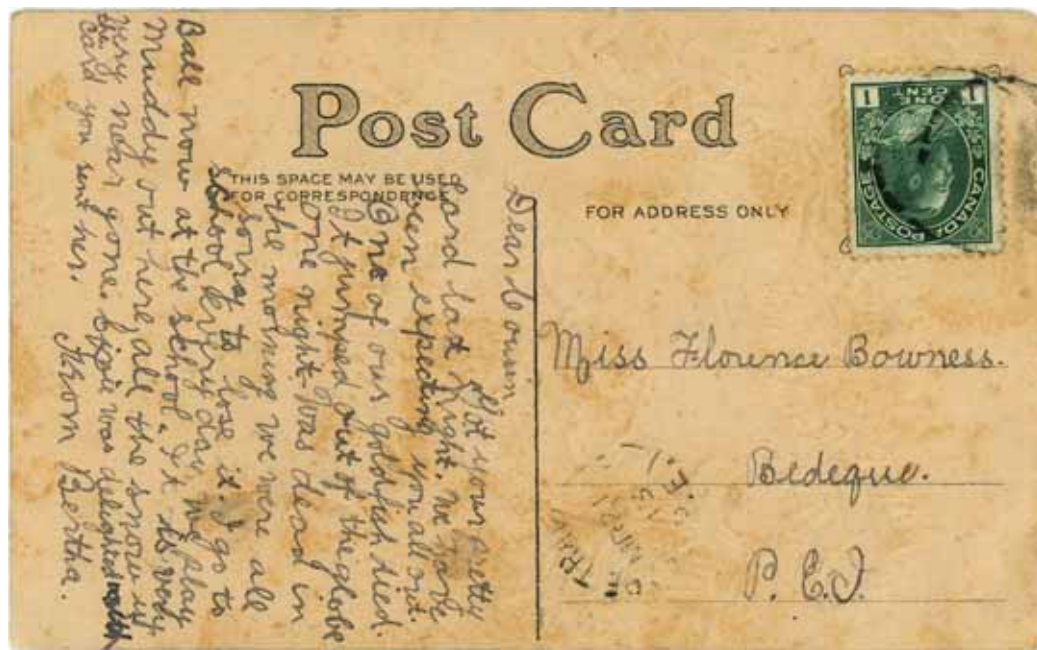 Post Card
THIS SPACE MAY BE USED
FOR CORRESPONDENCE
FOR ADDRESS ONLY
1 ONE CENT 1
CANADA POSTAGE
Miss Florence Bowness.
Bedeque.
P. E. I.
Dear Cousin
Got your pretty
Card last night. We have
been expecting you all out.
One of our goldfish died.
It jumped out of the globe
one night. Was dead in
the morning we were all
sorry to lose it. I go to
school every day, we play
Ball now at the school. It is very
Muddy out here, all the snow is
very near gone. was delighted with
the card you sent her.
From Bertha.
MR 21
P.E.I.